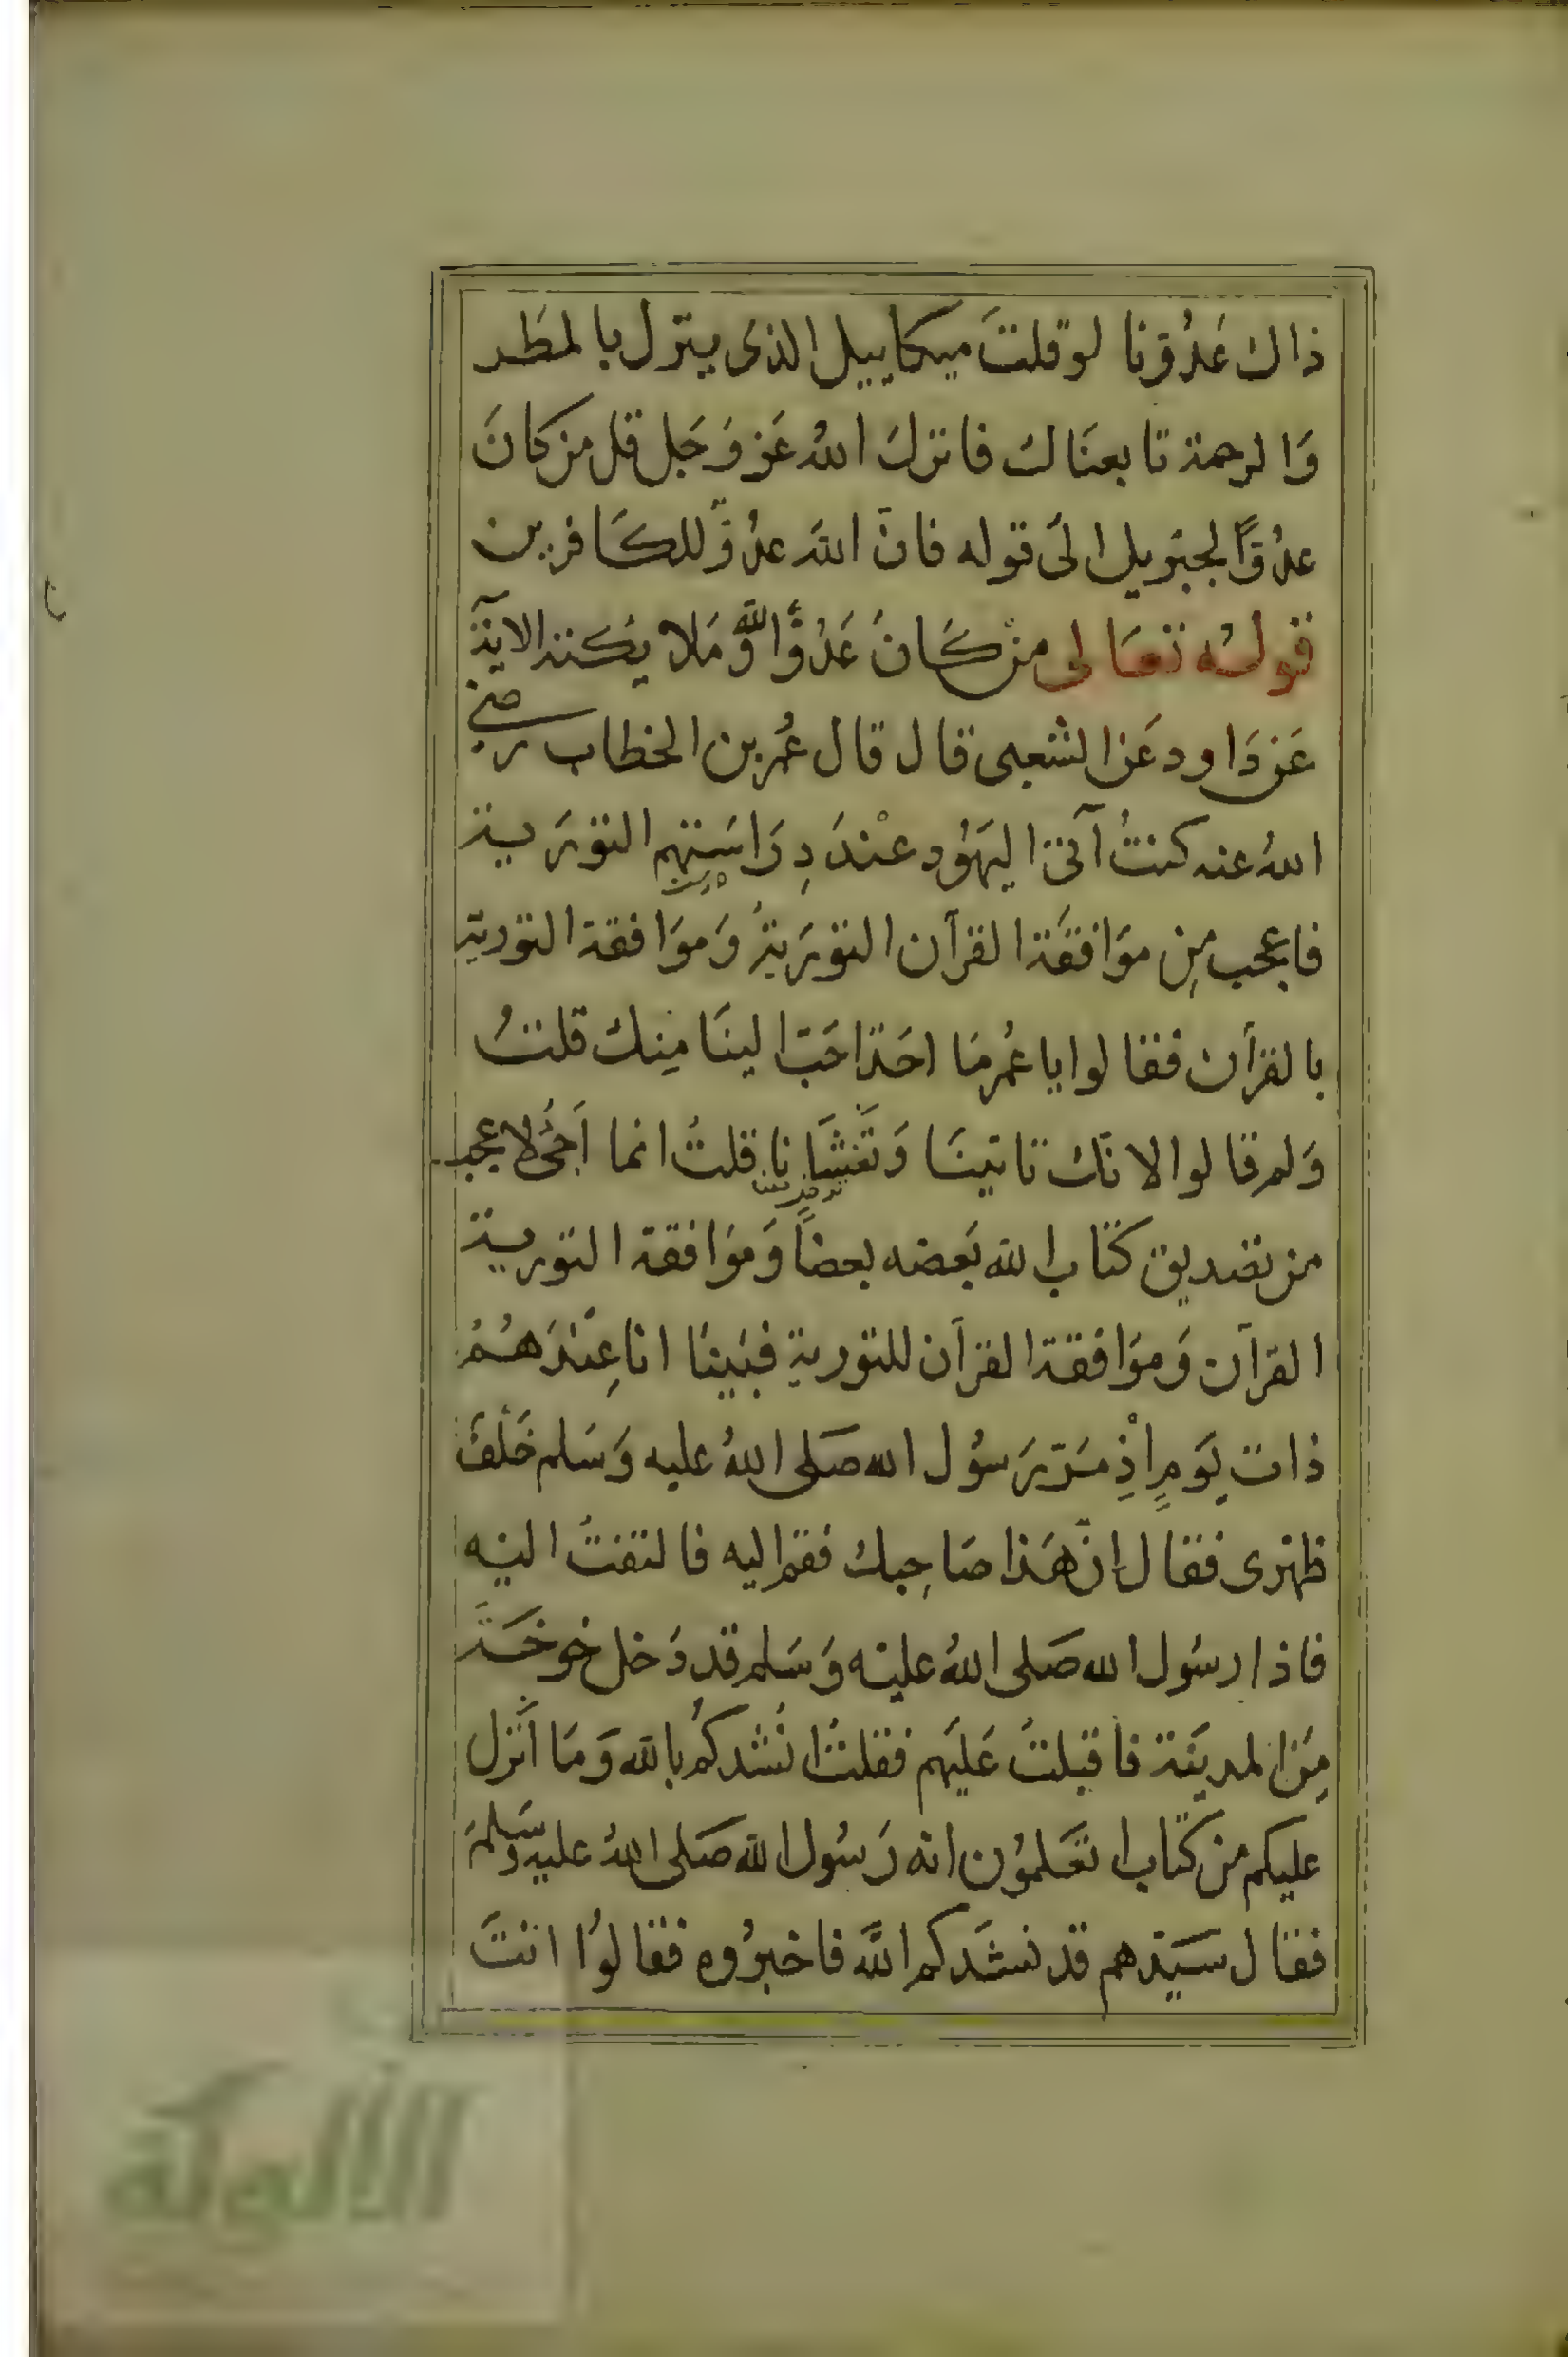 ذاك عَدُوّنا لوقلتَ ميكاييل الذى ينزل بالمطَر
وَالرحمة تابعنَاك فانزلَ اللهُ عَز وَجَل قل من كانَ
عدُوّاً لجبريل الىَ قوله فانَ اللهَ عدُوّ للكَافرين
قوله تعَالى من كَانَ عَدُوًّا لِلّه وَمَلايكته الآية
عَن دَاود عَن الشعبى قال قال عُمر بن الخطاب رضى
اللهُ عنه كنتُ آتى اليَهُود عنْدَ دِرَاسَتهم التورَية
فاعجب مِن موَافقَة القرآن التورَيةَ وَموَافقة التورية
بالقرآن فقالوا يا عُمر مَا احَد احَبّ الينَا مِنك قلتُ
وَلم قالوا لانَك تاتينَا وَتَغشَانا قلتُ انما اَجىُ لاعجب
من تصديق كتاب الله بَعضه بعضاً وَموَافقة التورية
القرآن وَموَافقة القرآن للتورية فبَينَا انا عِنْدَهُمُ
ذات يَومٍ اذِ مَرّ رَسُول الله صَلى اللهُ عليه وَسَلم خَلْفَ
ظهرى فقال اِنّ هَذا صَاحِبك فقم اليه فالتفتُ اليْه
فاذا رسُول الله صَلى اللهُ عليْه وَسَلم قد دَخل خوخَةً
مِنَ المدينَة فاقبلتُ عَليهم فقلتُ انُشدكُم بالله وَمَا اَنزل
عليكم من كتاب اتعَلمُون انه رَسُول الله صَلى اللهُ عليه وَسَلم
فقال سَيّدهم قد نشَدكم اللّهَ فاخبرُوه فقالوُا انتَ
الألوكة